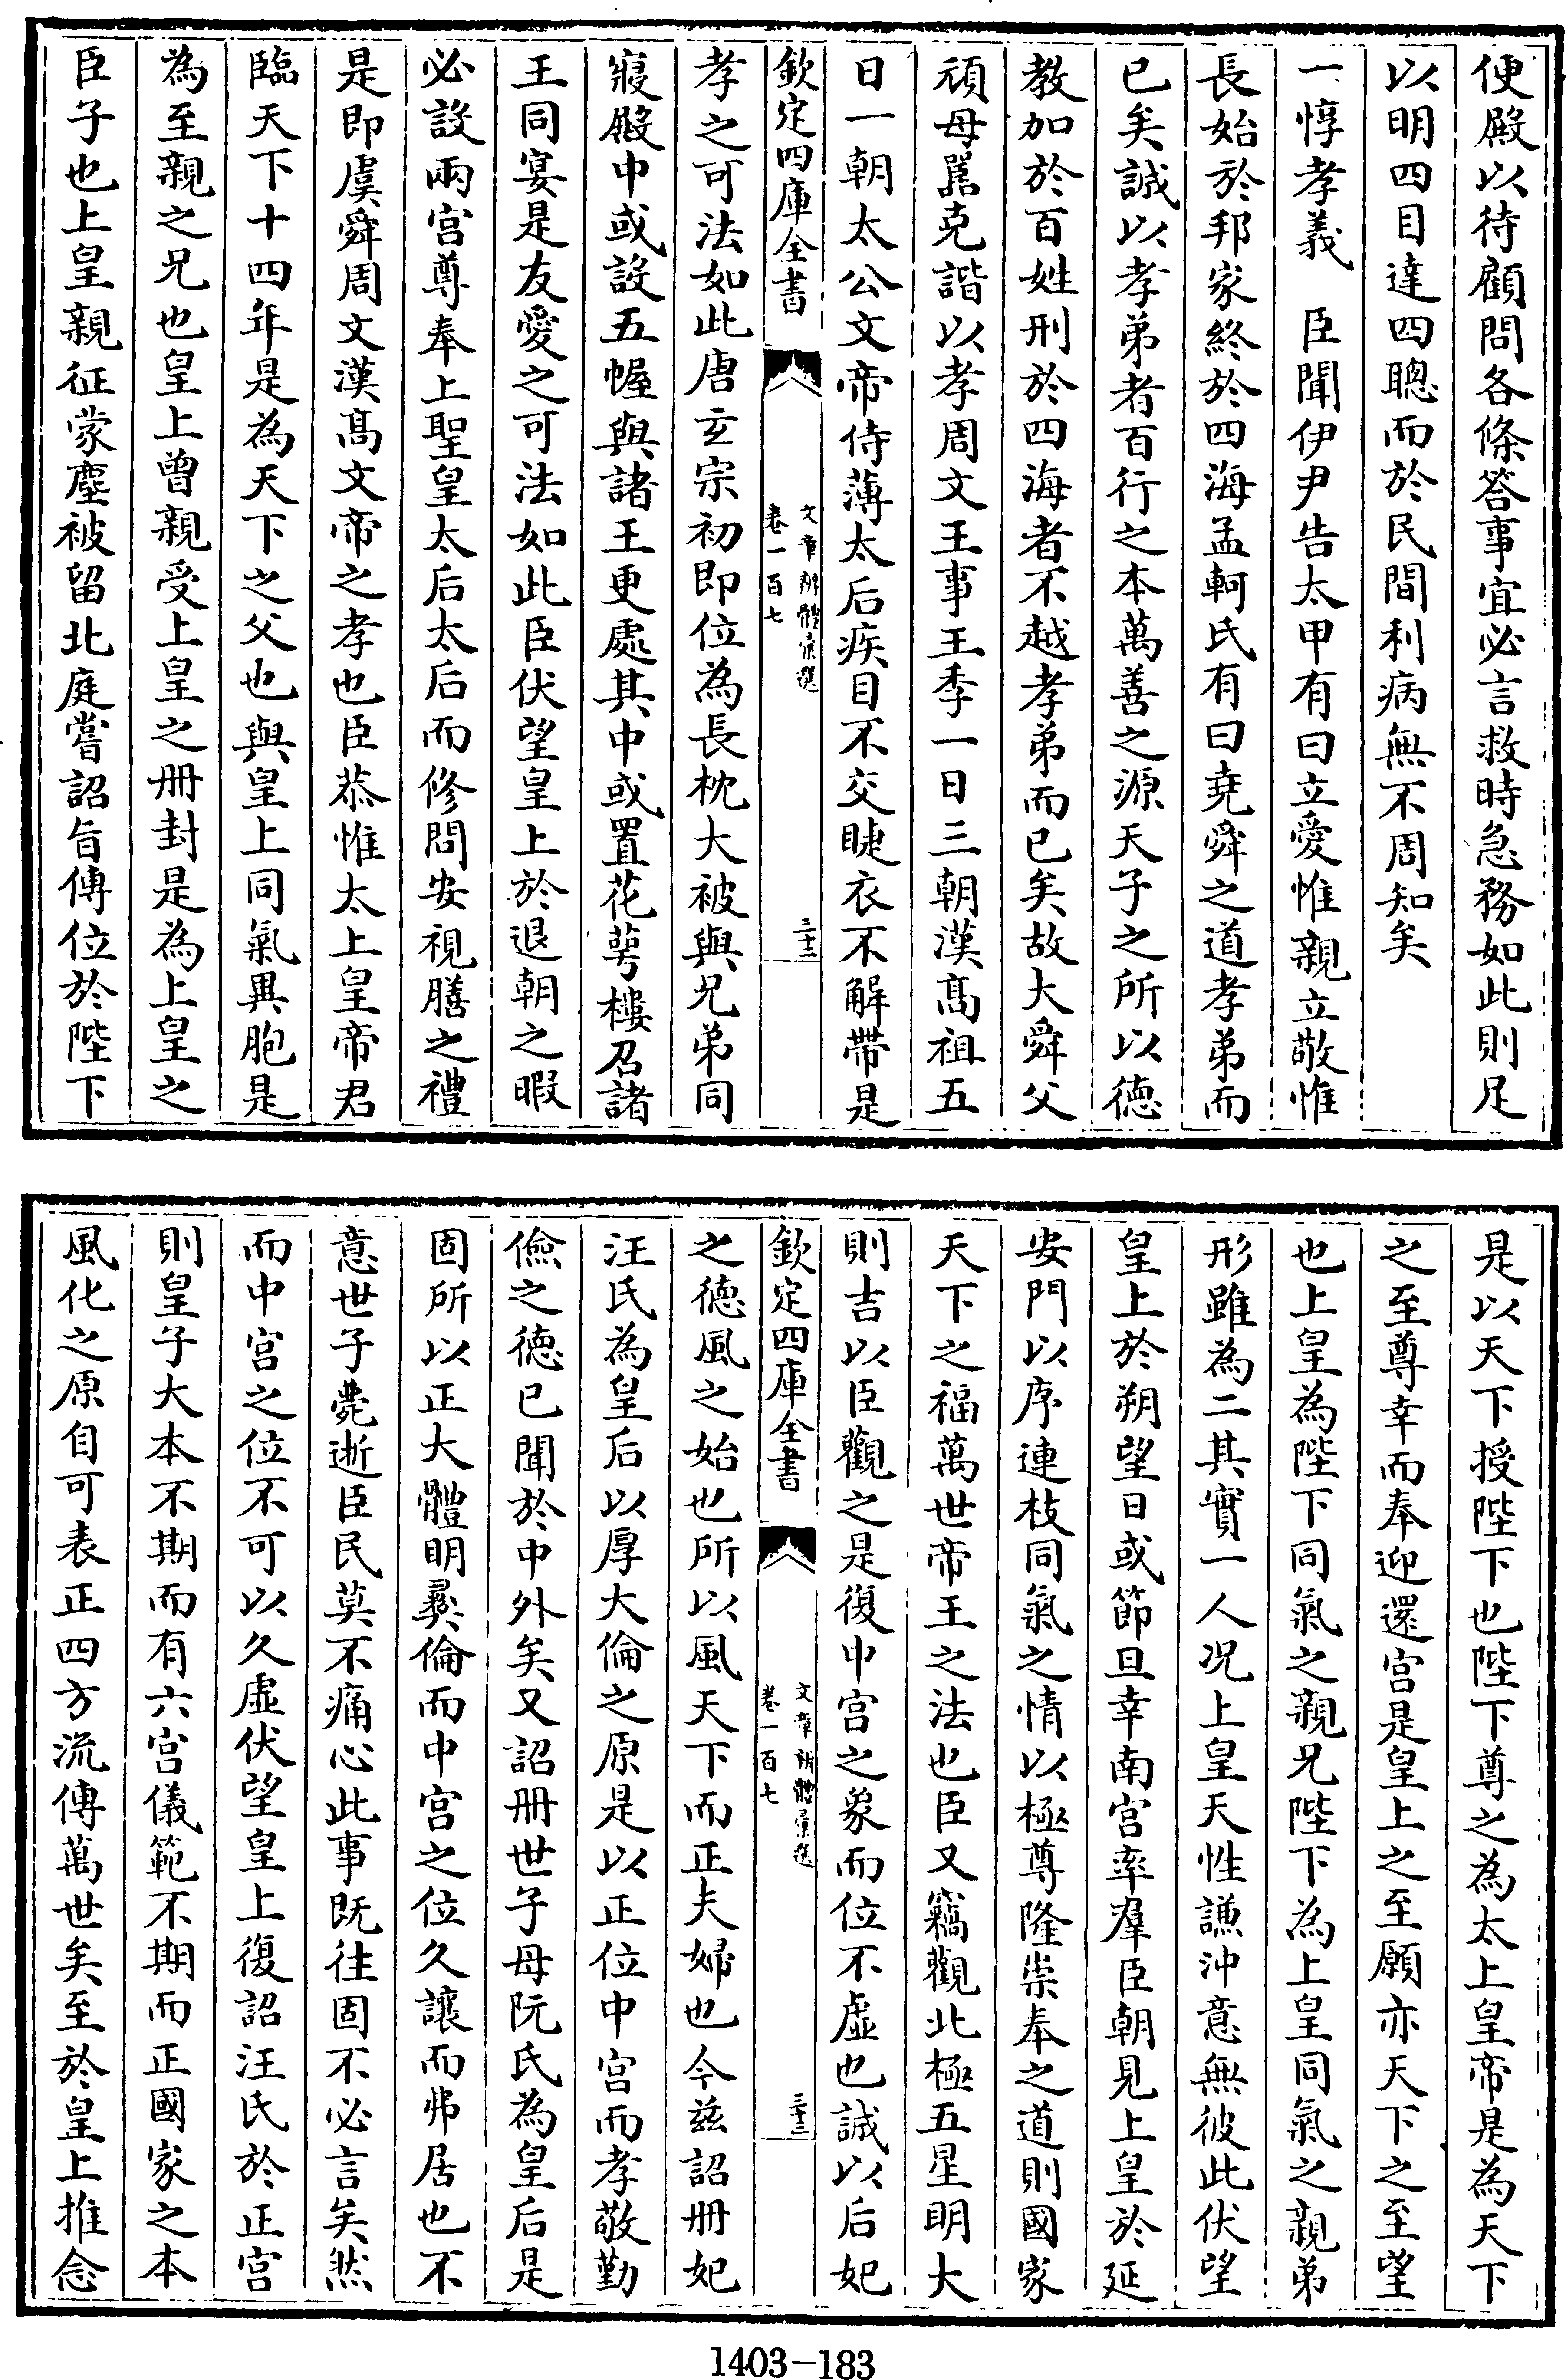 便殿以待顧問各條答事宜必言救時急務如此則足
以明四目達四聰而於民間利病無不周知矣
一惇孝義　臣聞伊尹告太甲有曰立愛惟親立敬惟
長始於邦家終於四海孟軻氏有曰堯舜之道孝弟而
已矣誠以孝弟者百行之本萬善之源天子之所以德
教加於百姓刑於四海者不越孝弟而已矣故大舜父
頑母嚚克諧以孝周文王事王季一日三朝漢髙祖五
日一朝太公文帝侍薄太后疾目不交睫衣不解帶是
欽定四庫全書
文章辨體彚選
卷一百七
三十二
孝之可法如此唐玄宗初即位為長枕大被與兄弟同
寢殿中或設五幄與諸王更處其中或置花萼樓召諸
王同宴是友愛之可法如此臣伏望皇上於退朝之暇
必設兩宫尊奉上聖皇太后太后而修問安視膳之禮
是即虞舜周文漢髙文帝之孝也臣恭惟太上皇帝君
臨天下十四年是為天下之父也與皇上同氣異胞是
為至親之兄也皇上曾親受上皇之冊封是為上皇之
臣子也上皇親征蒙塵被留北庭嘗詔旨傳位於陛下
是以天下授陛下也陛下尊之為太上皇帝是為天下
之至尊幸而奉迎還宫是皇上之至願亦天下之至望
也上皇為陛下同氣之親兄陛下為上皇同氣之親弟
形雖為二其實一人况上皇天性謙沖意無彼此伏望
皇上於朔望日或節旦幸南宫率羣臣朝見上皇於延
安門以序連枝同氣之情以極尊隆崇奉之道則國家
天下之福萬世帝王之法也臣又竊觀北極五星明大
則吉以臣觀之是復中宫之象而位不虛也誠以后妃
欽定四庫全書
文章辨體彚選
卷一百七
三十三
之德風之始也所以風天下而正夫婦也今兹詔冊妃
汪氏為皇后以厚大倫之原是以正位中宫而孝敬勤
儉之德已聞於中外矣又詔冊世子母阮氏為皇后是
固所以正大體明彛倫而中宫之位久讓而弗居也不
意世子薨逝臣民莫不痛心此事既往固不必言矣然
而中宫之位不可以久虛伏望皇上復詔汪氏於正宫
則皇子大本不期而有六宫儀範不期而正國家之本
風化之原自可表正四方流傳萬世矣至於皇上推念
1403-183